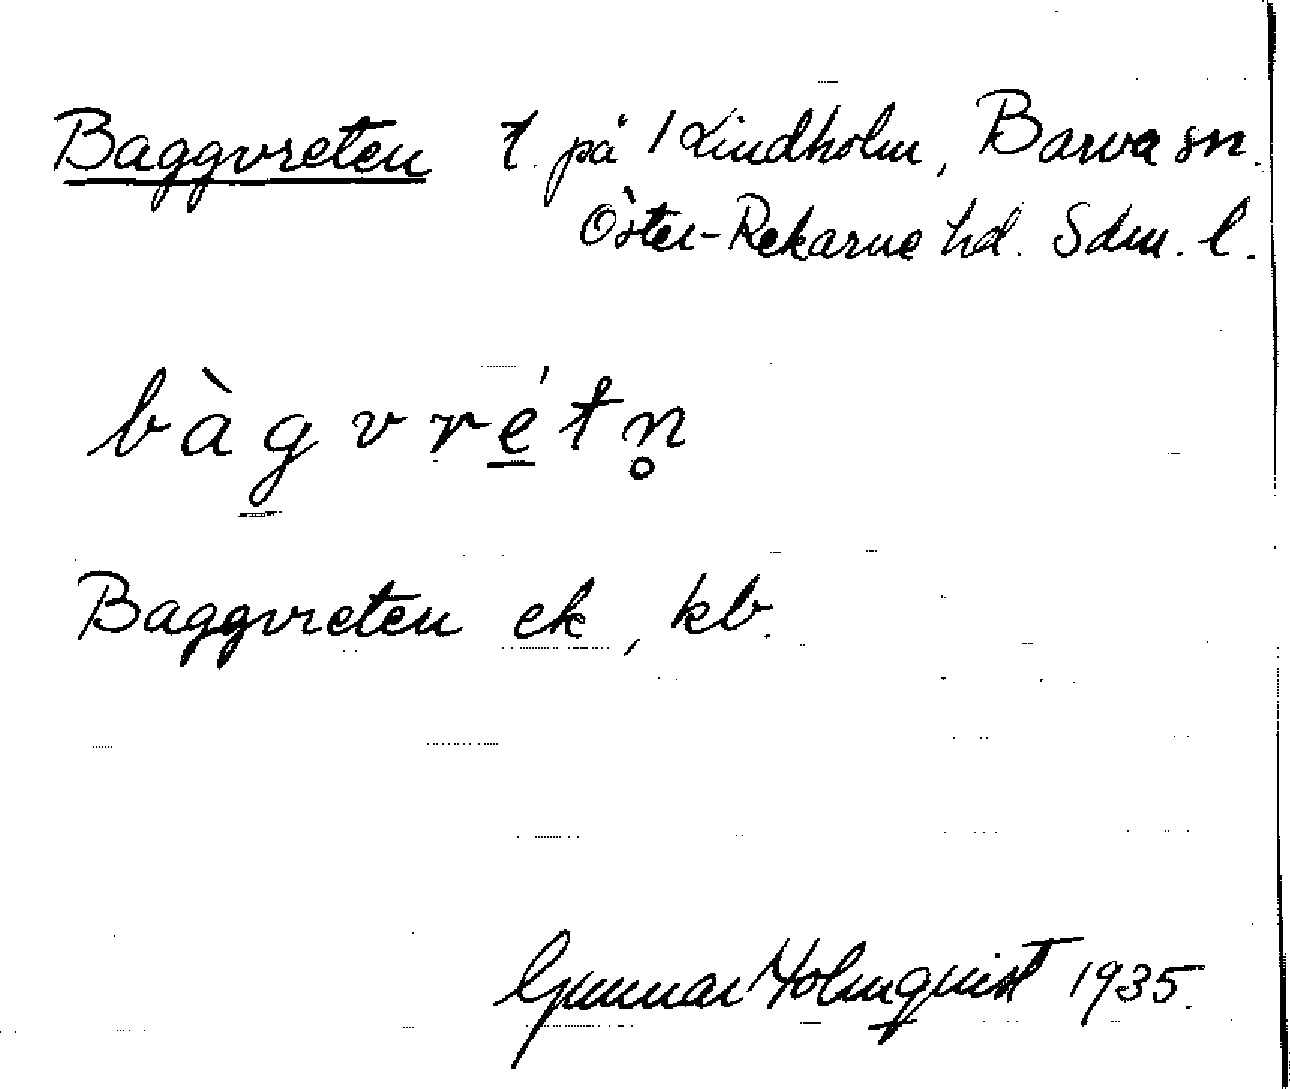 Baggvreten t. på 1 Lindholm, Barva sn.
Öster-Rekarne hd. Sdm. l.
bàgvré̠tn̥
Baggvreten ek, kb.
Gunnar Holmquist 1935.